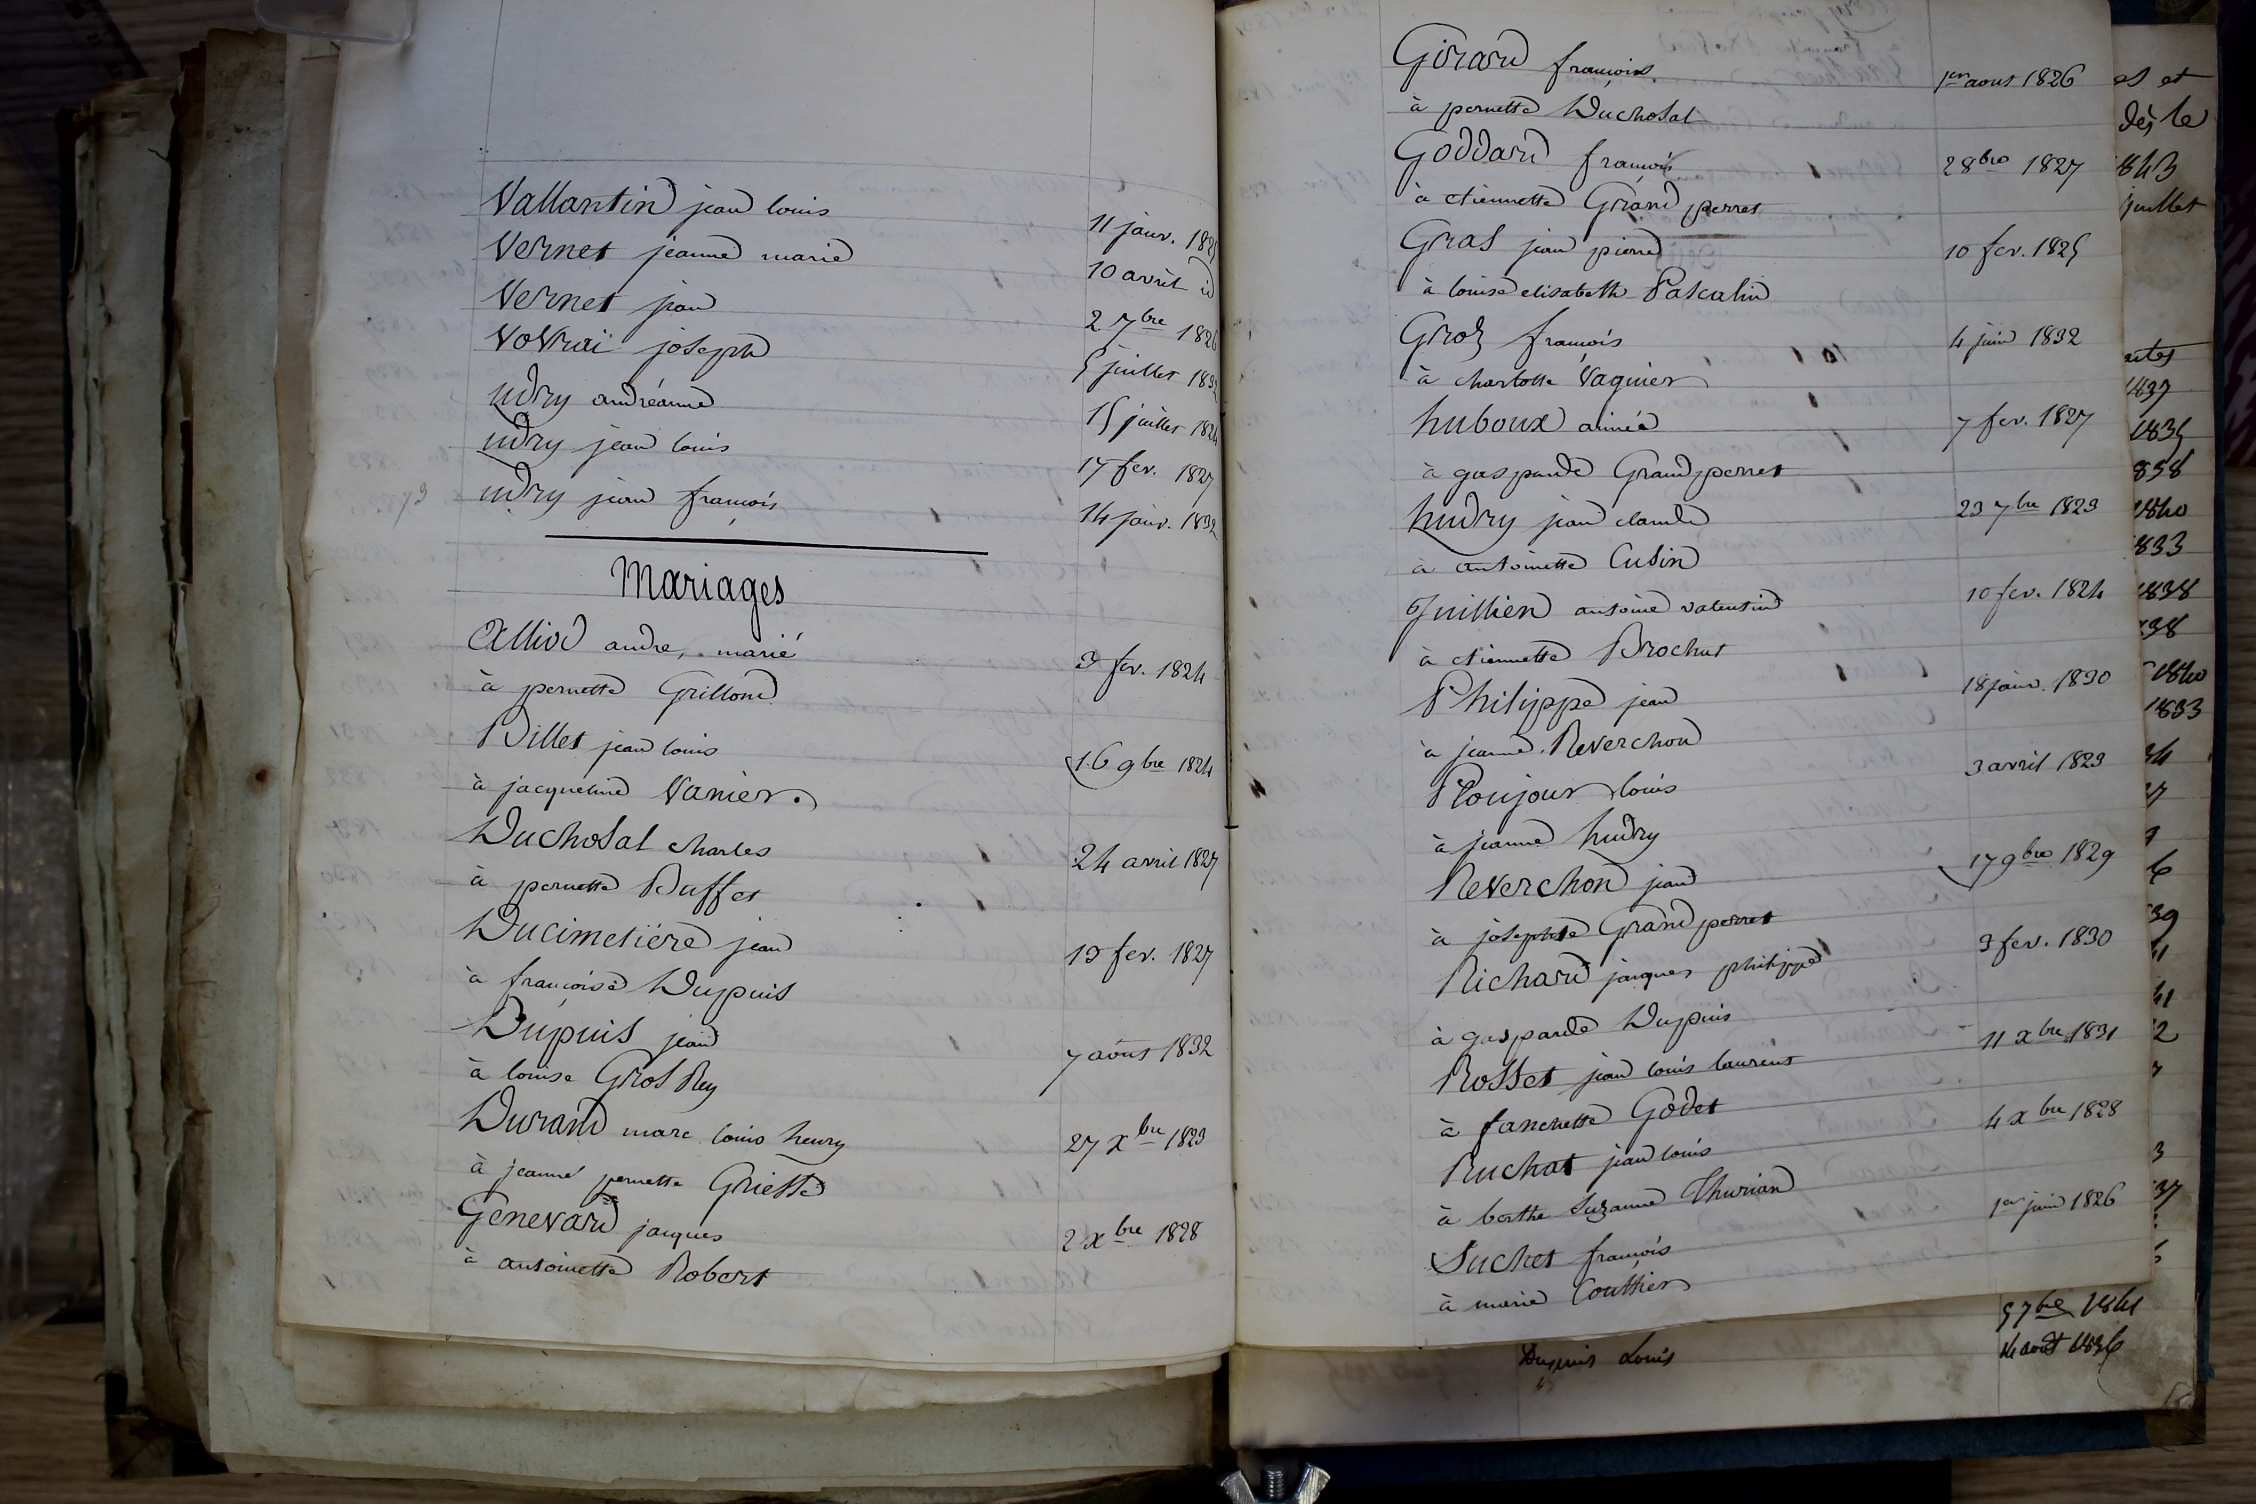 Vallantin jean louis 11 janv. 1825
Vernet jeanne marie 10 avril id
Vernet jean 2 7bre 1826
VoVrai joseph 5 juillet 1832
udry andréanne 15 juillet 1824
udry jean louis 17 fev. 1827
udry jean françois 14 janv. 1832
Mariages
Alliod andre, marié 3 fev. 1824
à pernette Grillond
Billet jean louis 16 9bre 1824
à jacqueline Vanier.
Duchosal charles 24 avril 1827
à pernette Buffet
Ducimetière jean 13 fev. 1827
à françoise Dupuis
Dupuis jean 7 aout 1832
à louise GrosRey
Durand marc louis henry 27 xbre 1823
à jeanne pernette Griesse
Genevard jacques 2 xbre 1828
à antoinette Robert
Girard françois 1er aout 1826
à pernette Duchosal
Goddard françois 2 8bre 1827
à etiennette Grand perret
Gras jean pierre 10 fev. 1825
à louise elisabeth Pascalin
Groz françois 4 juin 1832
à charlotte Vagnier
huboux aimée 7 fev. 1827
à gasparde Grandperret
hudry jean claude 23 7bre 1823
à antoinette Cusin
Juillien antoine valentin 10 fev. 1824
à etiennette Brochut
Philippe jean 18 janv. 1830
à jeanne Reverchon
Ploujour louis 3 avril 1823
à jeanne hudry
Reverchon jean 17 9bre 1829
à josephte Grand perret
Richard jacques philippe 3 fev. 1830
à gasparde Dupuis
Rosset jean louis laurent 11 xbre 1831
à fanchette Godet
Ruchat jean louis 4 xbre 1828
à berthe Suzanne Thurian
Suchet françois 1er juin 1826
à marie Couttier
5 7bre 1841
Dupuis Louis 14 août 1836
es et
dès le
843
juillet
1837
1835
838
1840
833
1838
38
1840
1833
34
39
41
41
37